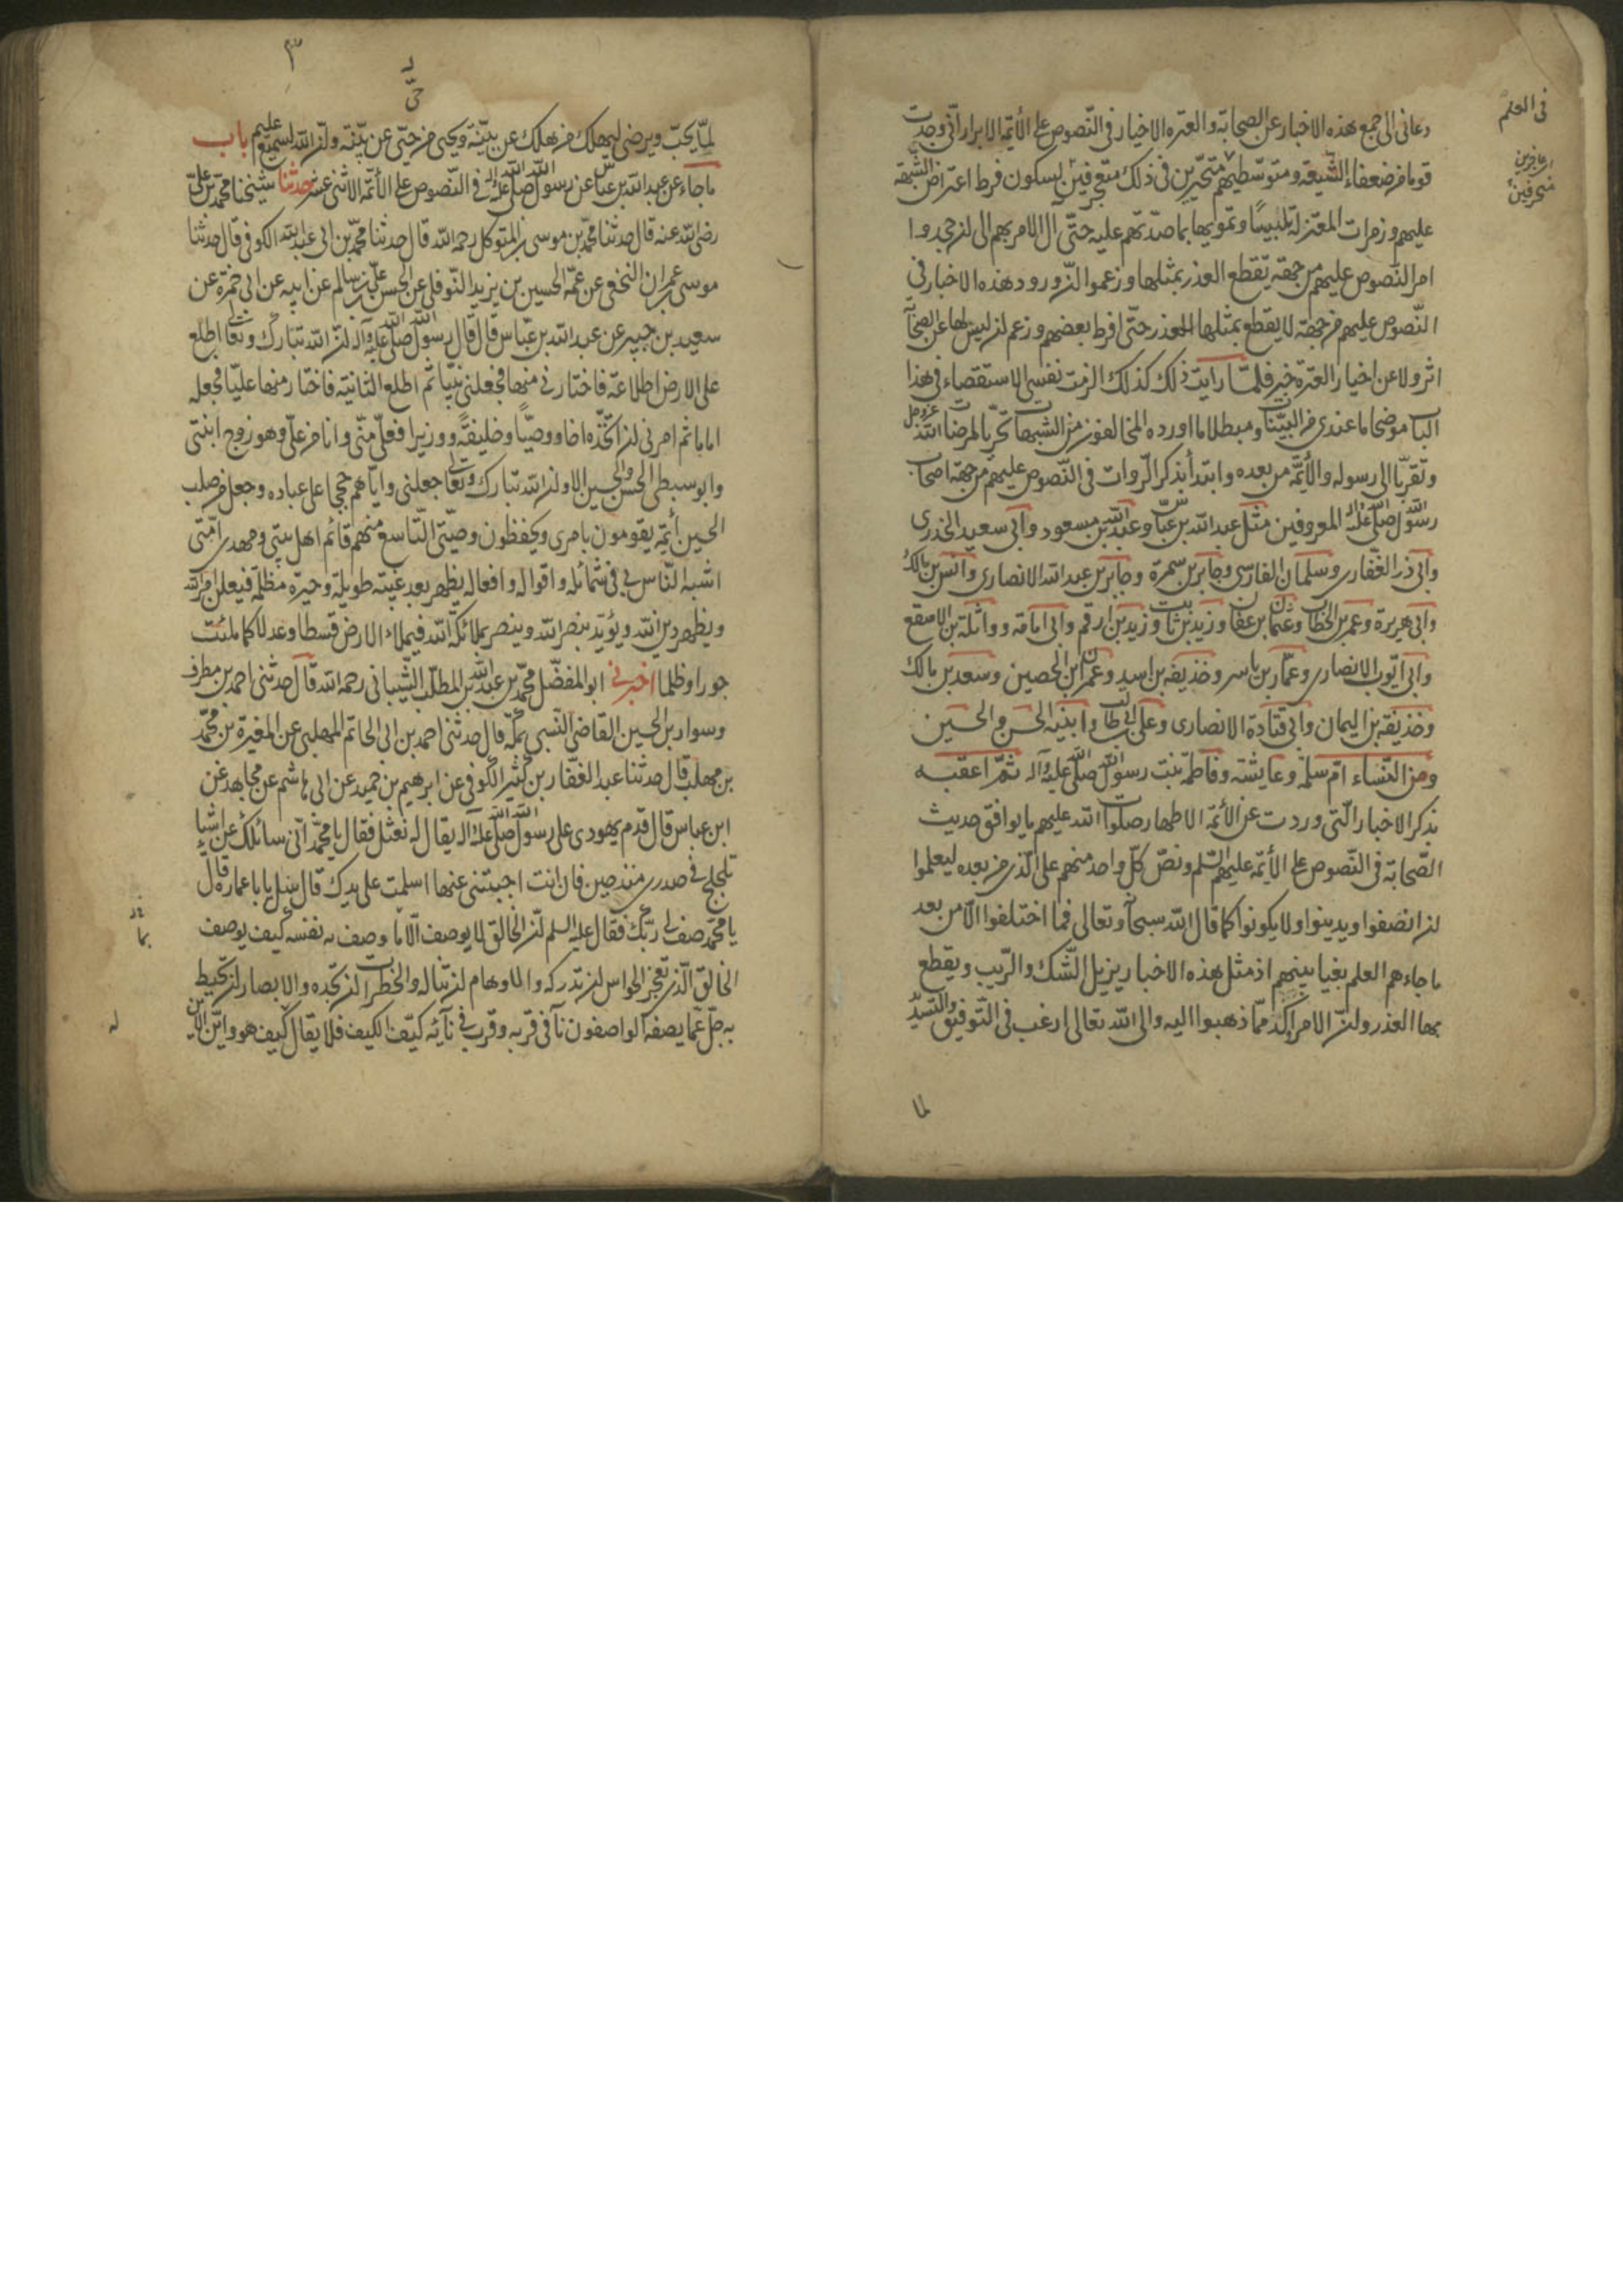 في العلم
دعاني الى جمع هذه الاخبار عن الصحابة والعترة الاخيار في النصوص على الأئمة الابرار اني وجدت
قوما من ضعفاء الشيعة ومتوسطيهم متحيرين في ذلك متعجرفين يسكون فرط اعتراض الشبهة
عليهم وزمرات المعتزلة تلبيسا وتمويها بما صدتهم عليه حتى آل الامر بهم الى ان جحدوا
امر النصوص عليهم من جهة يقطع العذر بمثلها وزعموا ان ورود هذه الاخبار في
النصوص عليهم من جهة لا يقطع بمثلها العذر حتى افرط بعضهم وزعم ان ليس لها عن الصحابة
اثر ولا عن اخيار العترة خبر فلما رايت ذلك كذلك الزمت نفسي الاستقصاء في هذا
الباب موضحا ما عندي من البينات ومبطلا ما اورده المخالفون من الشبهات تحريا لمرضات الله عز وجل
وتقربا الى رسوله والأئمة من بعده وابتدأ بذكر الروات في النصوص عليهم من جهة اصحاب
رسول الله صلى الله عليه وآله المعروفين مثل عبد الله بن عباس وعبد الله بن مسعود وابي سعيد الخدري
وابي ذر الغفاري وسلمان الفارسي وجابر بن سمرة وجابر بن عبد الله الانصاري وانس بن مالك
وابي هريرة وعمر بن الخطاب وعثمان بن عفان وزيد بن ثابت وزيد بن ارقم وابي امامة وواثلة بن الاسقع
وابي ايوب الانصاري وعمار بن ياسر وحذيفه بن اسيد وعمران بن الحصين وسعد بن مالك
وحذيفة بن اليمان وابي قتادة الانصاري وعلي بن ابي طالب وابنيه الحسن والحسين
ومن النساء ام سلمة وعايشة وفاطمة بنت رسول الله صلى الله عليه وآله ثم اعقبه
بذكر الاخبار التي وردت عن الأئمة الاطهار صلوات الله عليهم ما يوافق حديث
الصحابة في النصوص على الأئمة عليهم السلم ونص كل واحد منهم على الذي من بعده ليعلموا
ان انصفوا ويدينوا ولا يكونوا كما قال الله سبحانه وتعالى فما اختلفوا الا من بعد
ما جاءهم العلم بغيا بينهم اذ مثل هذه الاخبار يزيل الشك والريب ويقطع
بها العذر وان الامر اكد مما ذهبوا اليه والى الله تعالى ارغب في التوفيق والتسديد
لما
٣
لما يحب ويرضى ليهلك من هلك عن بينة ويحيى من حي عن بينة وان الله لسميع عليم باب
ما جاء عن عبد الله بن عباس عن رسول الله صلى الله عليه وآله في النصوص على الأئمة الاثني عشر حدثنا شيخنا محمد بن علي
رضي الله عنه قال حدثنا محمد بن موسى بن المتوكل رحمه الله قال حدثنا محمد بن ابي عبد الله الكوفي قال حدثنا
موسى بن عمران النخعي عن عمه الحسين بن يزيد النوفلي عن الحسن بن علي بن سالم عن ابيه عن ابي حمزة عن
سعيد بن جبير عن عبد الله بن عباس قال قال رسول الله صلى الله عليه وآله ان الله تبارك وتعالى اطلع
على الارض اطلاعة فاختارني منها فجعلني نبيا ثم اطلع الثانية فاختار منها عليا فجعله
اماما ثم امرني ان اتخذه اخا ووصيا وخليفة ووزيرا فعلي مني وانا من علي وهو زوج ابنتي
وابو سبطي الحسن والحسين الا وان الله تبارك وتعالى جعلني واياهم حججا على عباده وجعل من صلب
الحسين أئمة يقومون بامري ويحفظون وصيتي التاسع منهم قائم اهل بيتي ومهدي امتي
اشبه الناس بي في شمائله واقواله وافعاله يظهر بعد غيبة طويلة وحيرة مظلمة فيعلن امر الله
ويظهر دين الله ويؤيد بنصر الله وينصر بملائكة الله فيملاء الارض قسطا وعدلا كما ملئت
جورا وظلما اخبرني ابو المفضل محمد بن عبد الله بن المطلب الشيباني رحمه الله قال حدثني احمد بن مطرف
وسوار بن الحسين القاضي النسبي بمكة قال حدثني احمد بن ابي الحاتم المهلبي عن المغيرة بن محمد
بن مهلب قال حدثنا عبد الغفار بن كثير الكوفي عن ابرهيم بن حميد عن ابي هاشم عن مجاهد عن
ابن عباس قال قدم يهودي على رسول الله صلى الله عليه وآله يقال له نعثل فقال يا محمد اني سائلك عن اشياء
تلجلج في صدري منذ حين فان انت اجبتني عنها اسلمت على يدك قال سل يا با عمارة قال
يا محمد صف لي ربك فقال عليه السلم ان الخالق لا يوصف الا ما وصف به نفسه كيف يوصف
الخالق الذي تعجز الحواس ان تدركه والاوهام ان تناله والخطرات ان تحده والابصار ان تحيط
به جل عما يصفه الواصفون نآى في قربه وقرب في نآيه كيف الكيف فلا يقال كيف هو واين الاين